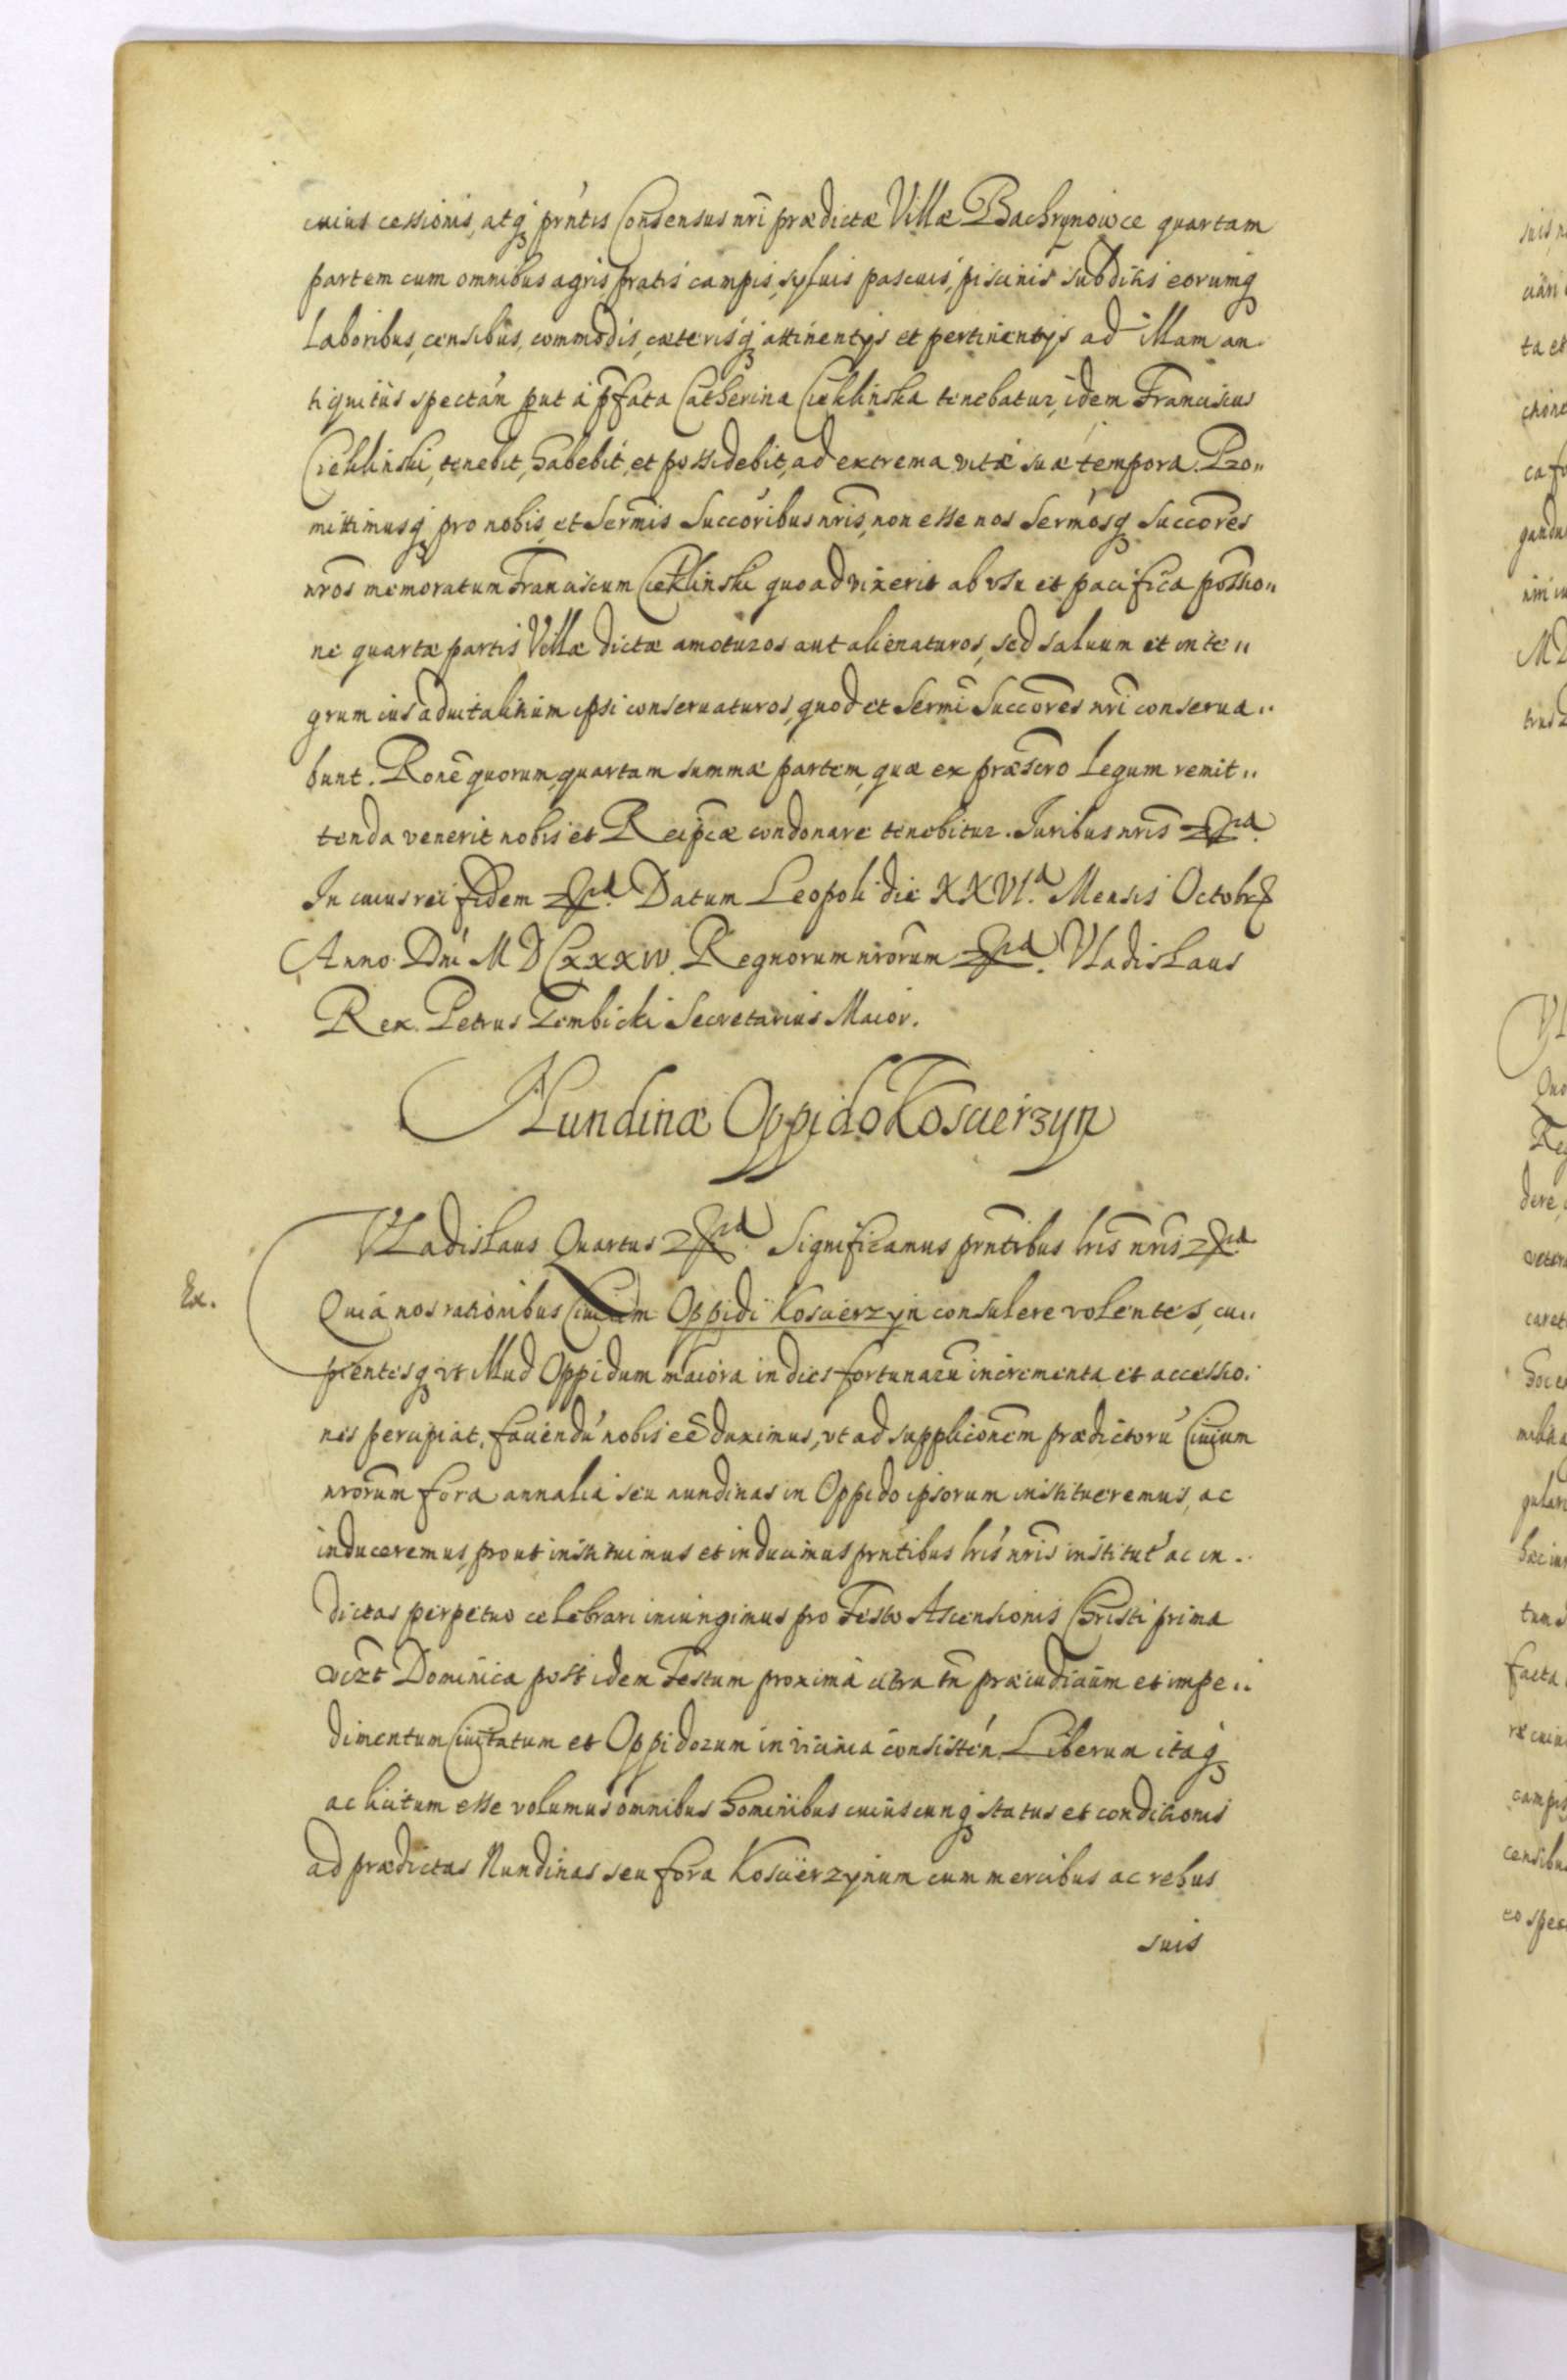 cuius cessionis, atq prńtis Consensus nri prædictæ Villæ Bachrynowce quartam
partem cum omnibus agris pratis campis, syluis pascuis, piscinis subditis eorumq
Laboribus, censibus, commodis, cæterisq attinentijs et pertinentijs ad illam an
tiquitus spectań put à pfata Catherina Cieklinska tenebatur, idem Franciscus
Cieklinski, tenebit, habebit, et possidebit, ad extrema vitæ suæ tempora. Pro„
mittimusq pro nobis et Sermis Succoribus nris, non esse nos Sermosq Succores
nros memoratum Franciscum Cieklinski quoad vixerit ab vsu et pacifica possio„
ne quartæ partis Villæ dictæ amoturos aut alienaturos, sed saluum et inte„
grum ius aduitalitium ipsi conseruaturos, quod et Sermi Succores nri conserua„
bunt. Rone quorum, quartam summæ partem, quæ ex præscro Legum remit„
tenda venerit nobis et Reipcæ condonare tenebitur. Iuribus nris
In cuius rei fidem Datum Leopoli die XXVI.ª Mensis Octobr
Anno Dni MDCXXXIV. Regnorum nrorum Vladislaus
Rex. Petrus Gembicki Secretarius Maior.
Nundinæ Oppido Koscierzyn
Vladislaus Quartus Significamus prntibus lris nris
Ex.
Quia nos rationibus Ciuium Oppidi Koscierzyn consulere volentes, cu„
pientesq vt illud Oppidum maiora in dies fortunaru incrementa et accessio„
nes percipiat, fauendu nobis eē duximus, vt ad supplicionem prædictoru Ciuium
nrorum fora annalia seu nundinas in Oppido ipsorum institueremus, ac
induceremus, prout instituimus et inducimus prntibus lris nris institut ac in„
dictas perpetuo celebrari iniungimus pro Festo Ascensionis Christi prima
vizt Dominica post idem Festum proxima citra tn præiudicium et impe„
dimentum Ciuitatum et Oppidorum in vicinia consisteń. Liberum itaq
ac licitum esse volumus omnibus hominibus cuiuscunq status et conditionis
ad prædictas Nundinas seu fora Koscierzynum cum mercibus ac rebus
suis